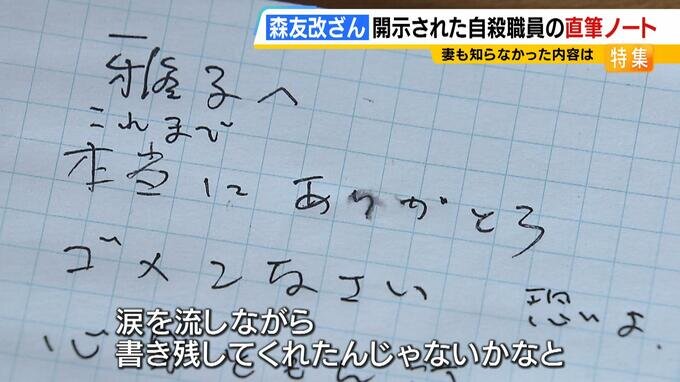 森友改ざん 開示された自殺職員の直筆ノート
妻も知らなかった内容は 特集
雅子へ
これまで
本当に ありがとう
ゴメンなさい
涙を流しながら
書き残してくれたんじゃないかなと